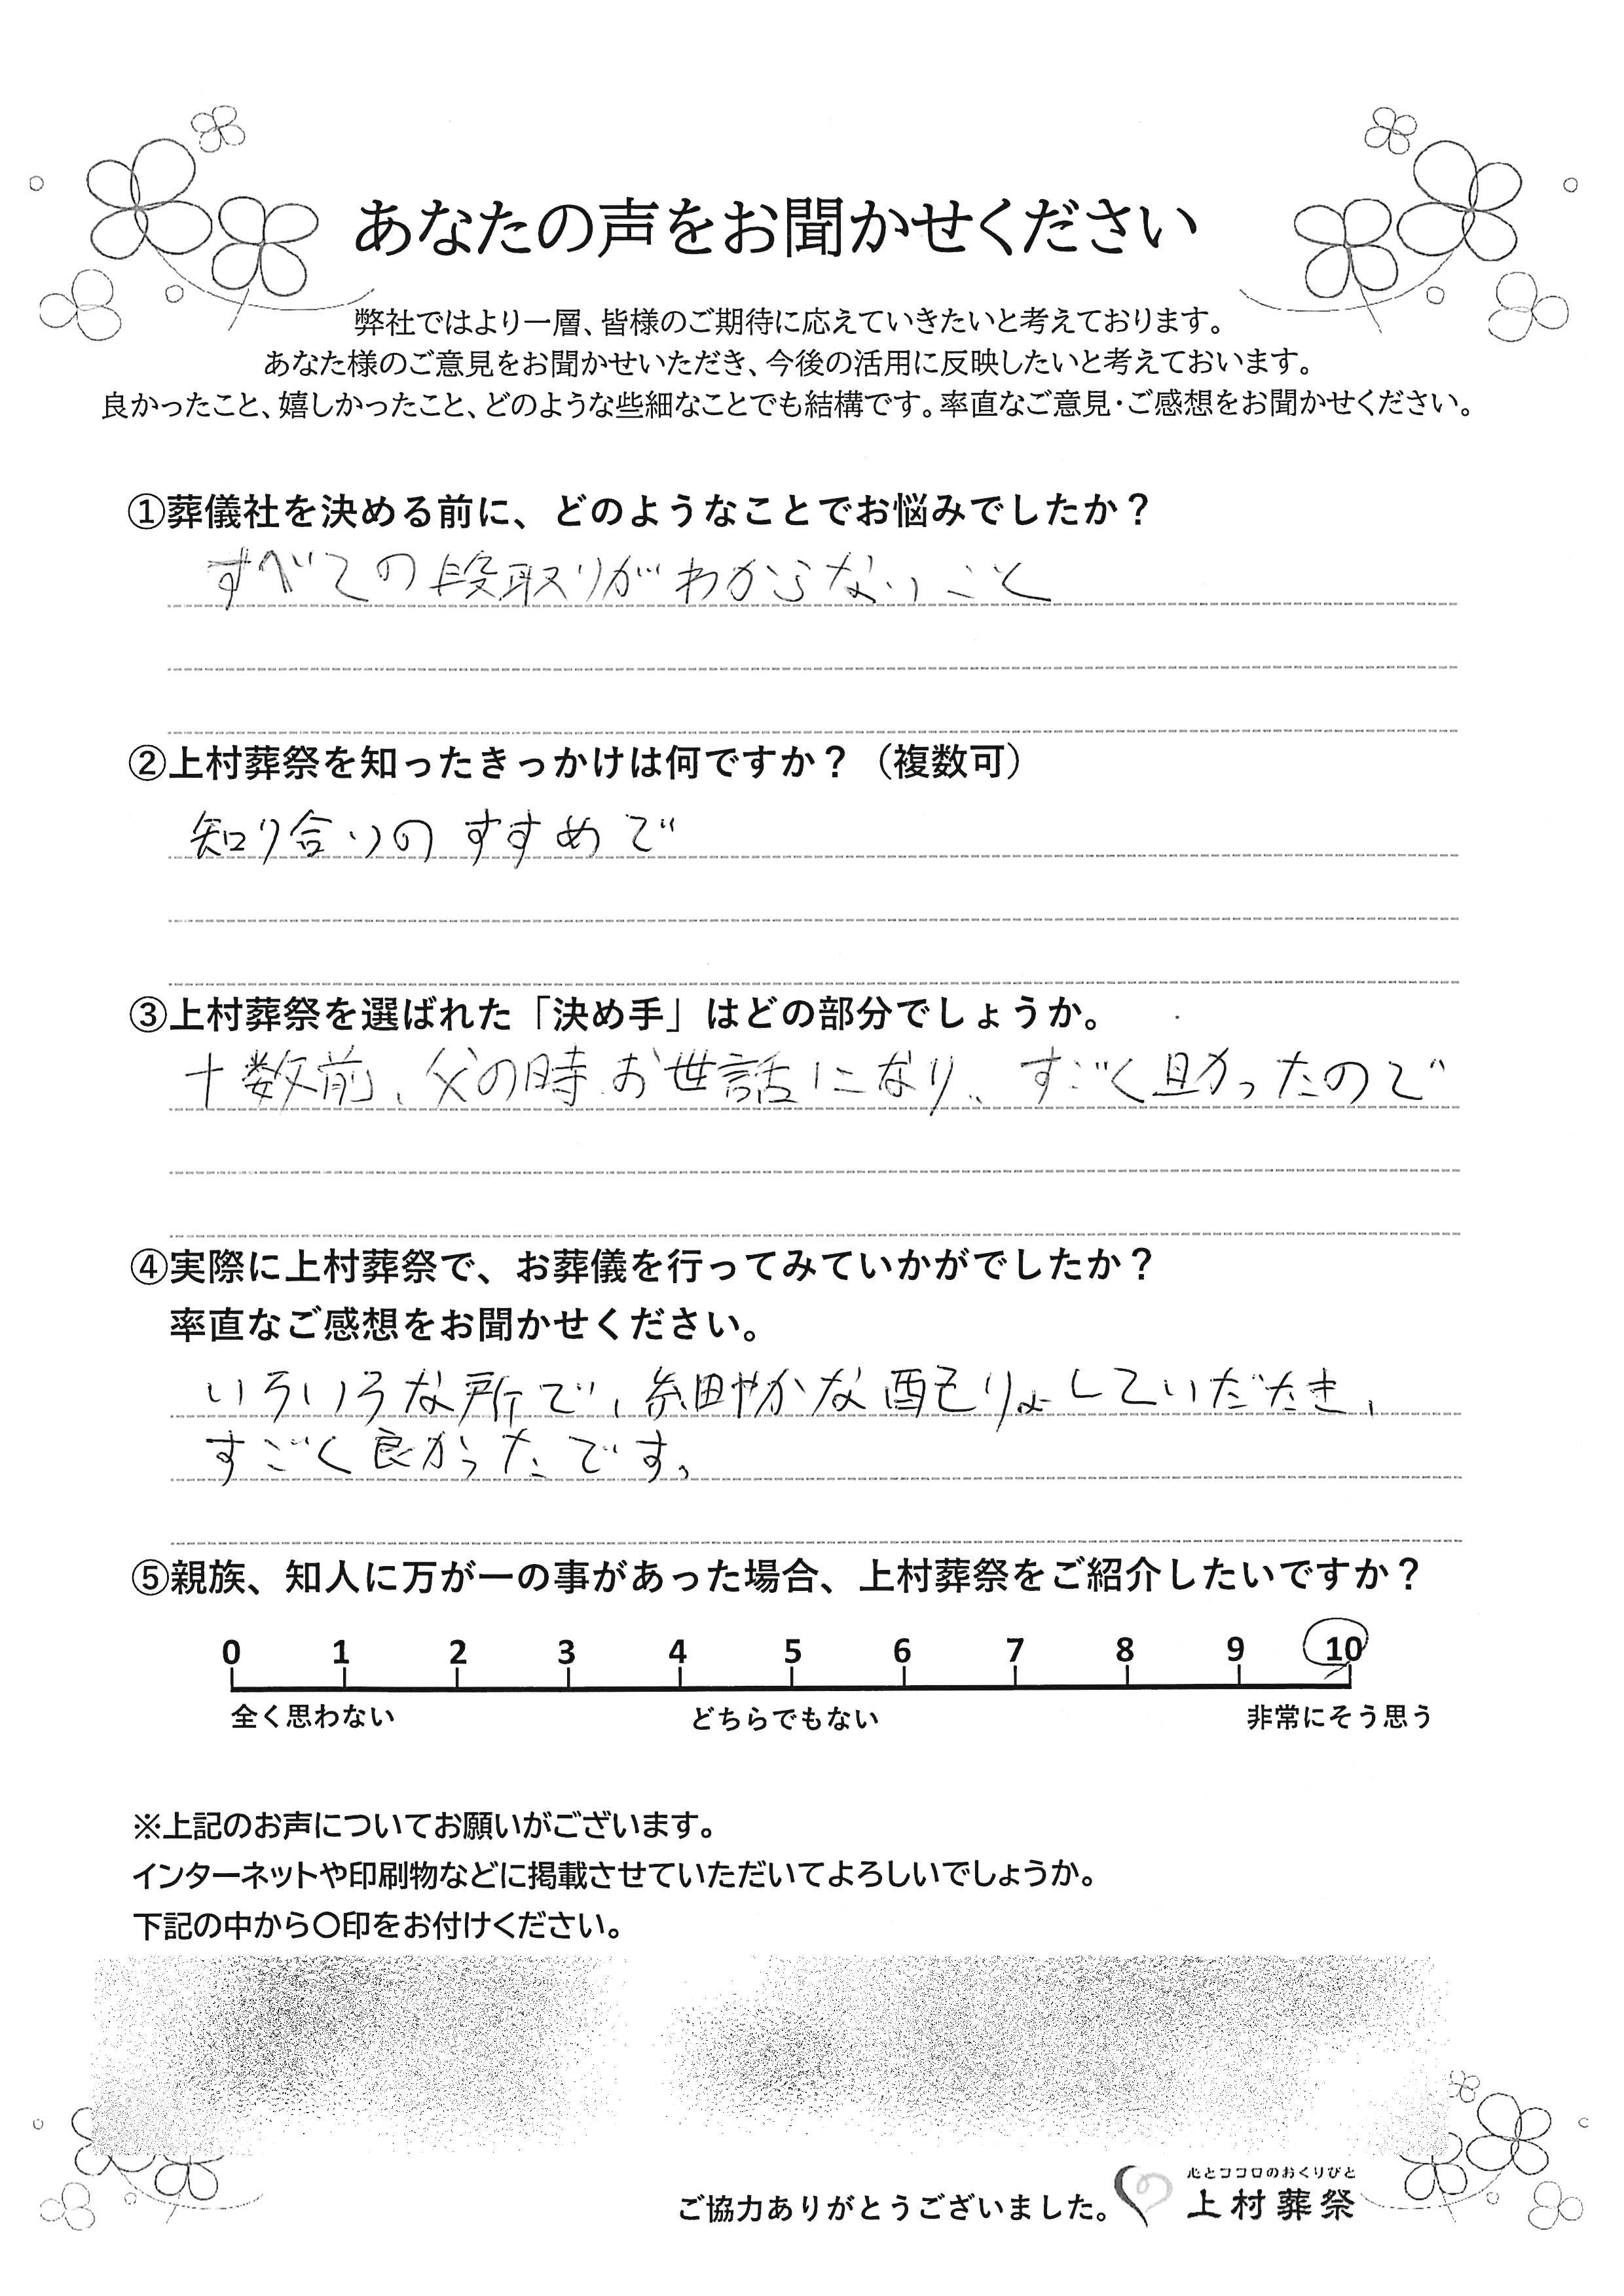 あなたの声をお聞かせください
弊社ではより一層、皆様のご期待に応えていきたいと考えております。
あなた様のご意見をお聞かせいただき、今後の活用に反映したいと考えておいます。
良かったこと、嬉しかったこと、どのような些細なことでも結構です。率直なご意見・ご感想をお聞かせください。
①葬儀社を決める前に、どのようなことでお悩みでしたか？
すべての段取りがわからないこと
②上村葬祭を知ったきっかけは何ですか？（複数可）
知り合いのすすめで
③上村葬祭を選ばれた「決め手」はどの部分でしょうか。
十数前、父の時お世話になり、すごく助かったので
④実際に上村葬祭で、お葬儀を行ってみていかがでしたか？
率直なご感想をお聞かせください。
いろいろな所で、細やかな配りょしていただたき、
すごく良かったです。
⑤親族、知人に万が一の事があった場合、上村葬祭をご紹介したいですか？
0 1 2 3 4 5 6 7 8 9 10
全く思わない どちらでもない 非常にそう思う
※上記のお声についてお願いがございます。
インターネットや印刷物などに掲載させていただいてよろしいでしょうか。
下記の中から〇印をお付けください。
心とココロのおくりびと
ご協力ありがとうございました。 上村葬祭